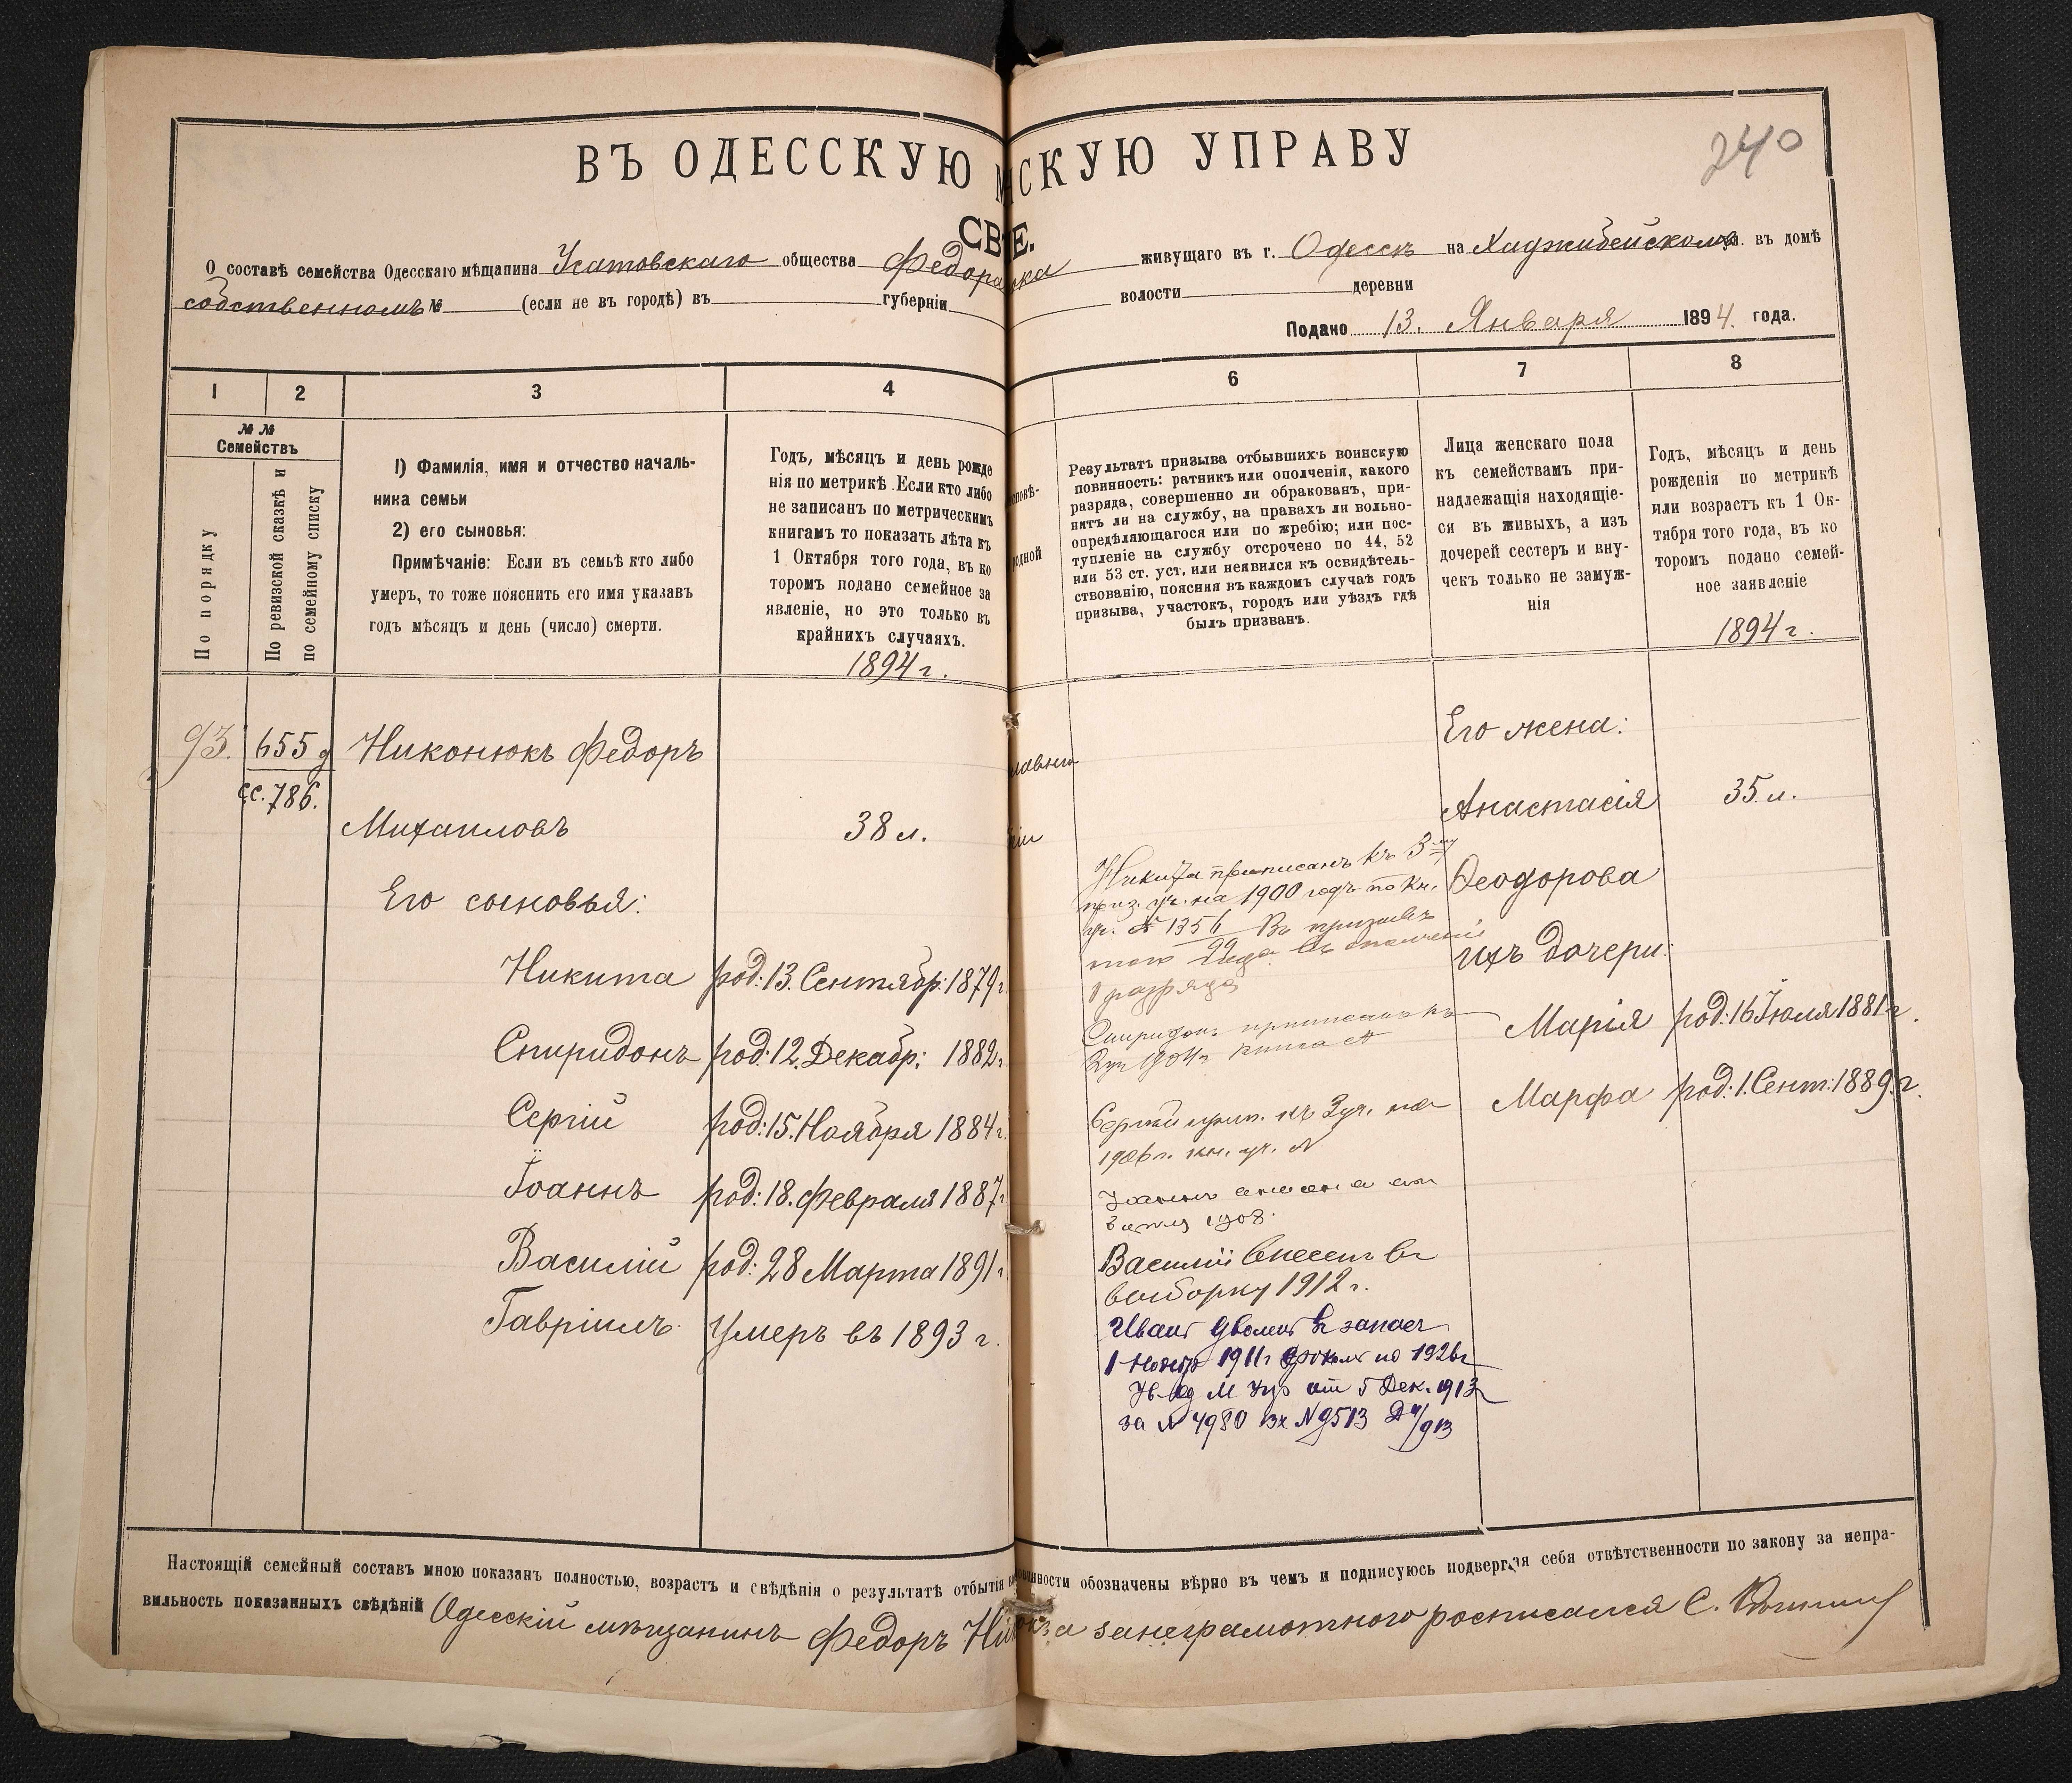 240
ВЪ ОДЕССКУЮ СКУЮ УПРАВУ
СВ Е.
О составѣ семейства Одесскаго мѣщанина Усатовскаго общества живущаго въ г. Одессѣ на Хаджибейской ул. въ домѣ
собственномъ № (если не въ городѣ) въ губерніи волости деревни
Подано 13. Января 1894. года.
1 2 3 4 6 7 8
№ №
Семействъ
По порядку
По ревизской сказкѣ и
по семейному списку
1) Фамилія, имя и отчество началь-
ника семьи
2) его сыновья:
Примѣчаніе: Если въ семьѣ кто либо
умеръ, то тоже пояснить его имя указавъ
годъ мѣсяцъ и день (число) смерти.
Годъ, мѣсяцъ и день рожде
нія по метрикѣ. Если кто либо
не записанъ по метрическимъ
книгамъ то показать лѣта къ
1 Октября того года, въ ко
торомъ подано семейное за
явленіе, но это только въ
крайнихъ случаяхъ.
1894 г.
Результатъ призыва отбывшихъ воинскую
повинность: ратникъ или ополченія, какого
разряда, совершенно ли обракованъ, при-
нятъ ли на службу, на правахъ ли вольно-
опредѣляющагося или по жребію; или пос-
тупленіе на службу отсрочено по 44, 52
или 53 ст. уст. или неявился къ освидѣтель-
ствованію, поясняя въ каждомъ случаѣ годъ
призыва, участокъ, городъ или уѣздъ гдѣ
былъ призванъ.
Лица женскаго пола
къ семействамъ при-
надлежащія находящіе-
ся въ живыхъ, а изъ
дочерей сестеръ и вну-
чекъ только не замуж-
нія
Годъ, мѣсяцъ и день
рожденія по метрикѣ
или возрастъ къ 1 Ок-
тября того года, въ ко
торомъ подано семей-
ное заявленіе
1894 г.
93. 655 д Никонюкъ Федоръ
сс. 786.
Михаиловъ 38 л.
Его сыновья:
Никита род: 13. Сентябр: 1879 г
Спиридонъ род: 12. Декабр: 1882 г
Сергій род: 15. Ноября 1884 г
Іоаннъ род: 18. Февраля 1887 г
Василій род: 28 Марта 1891 г
Гавріилъ. Умеръ въ 1893 г.
Никита приписанъ къ 3му
приз. уч. на 1900 годъ по кн.
уч. № 1356 Въ призывъ
1 разряда
Спиридонъ приписанъ къ
2 уч 1904 г. книга №
Сергій прип. къ 3 уч. на
1906 г. кн. уч. №
1908.
Василій внесенъ въ
выборку 1912 г.
Иванъ уволенъ въ запасъ
1 Ноября 1911 г срокомъ по 1926 г
Ув. от 5 Дек. 1913 г
за № 4980 вх № 9513
Его жена:
Анастасія 35 л.
Ѳеодорова
ихъ дочери:
Марія род: 16 Іюля 1881 г.
Марфа род: 1. Сент: 1889. г.
Настоящій семейный составъ мною показанъ полностью, возрастъ и свѣдѣнія о результатѣ отбытія инности обозначены вѣрно въ чемъ и подписуюсь подвергая себя отвѣтственности по закону за непра-
вильность показанныхъ свѣдѣній Одесскій мѣщанинъ Федоръ а за неграмотного росписался С.